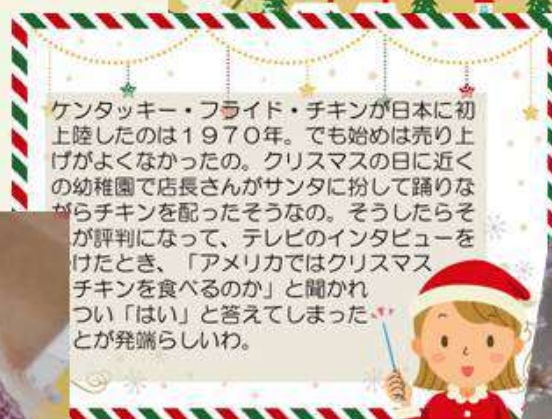 ケンタッキー・フライド・チキンが日本に初
上陸したのは1970年。でも始めは売り上
げがよくなかったの。クリスマスの日に近く
の幼稚園で店長さんがサンタに扮して踊りな
がらチキンを配ったそうなの。そうしたらそ
が評判になって、テレビのインタビューを
けたとき、「アメリカではクリスマス
チキンを食べるのか」と聞かれ
つい「はい」と答えてしまった
とが発端らしいわ。